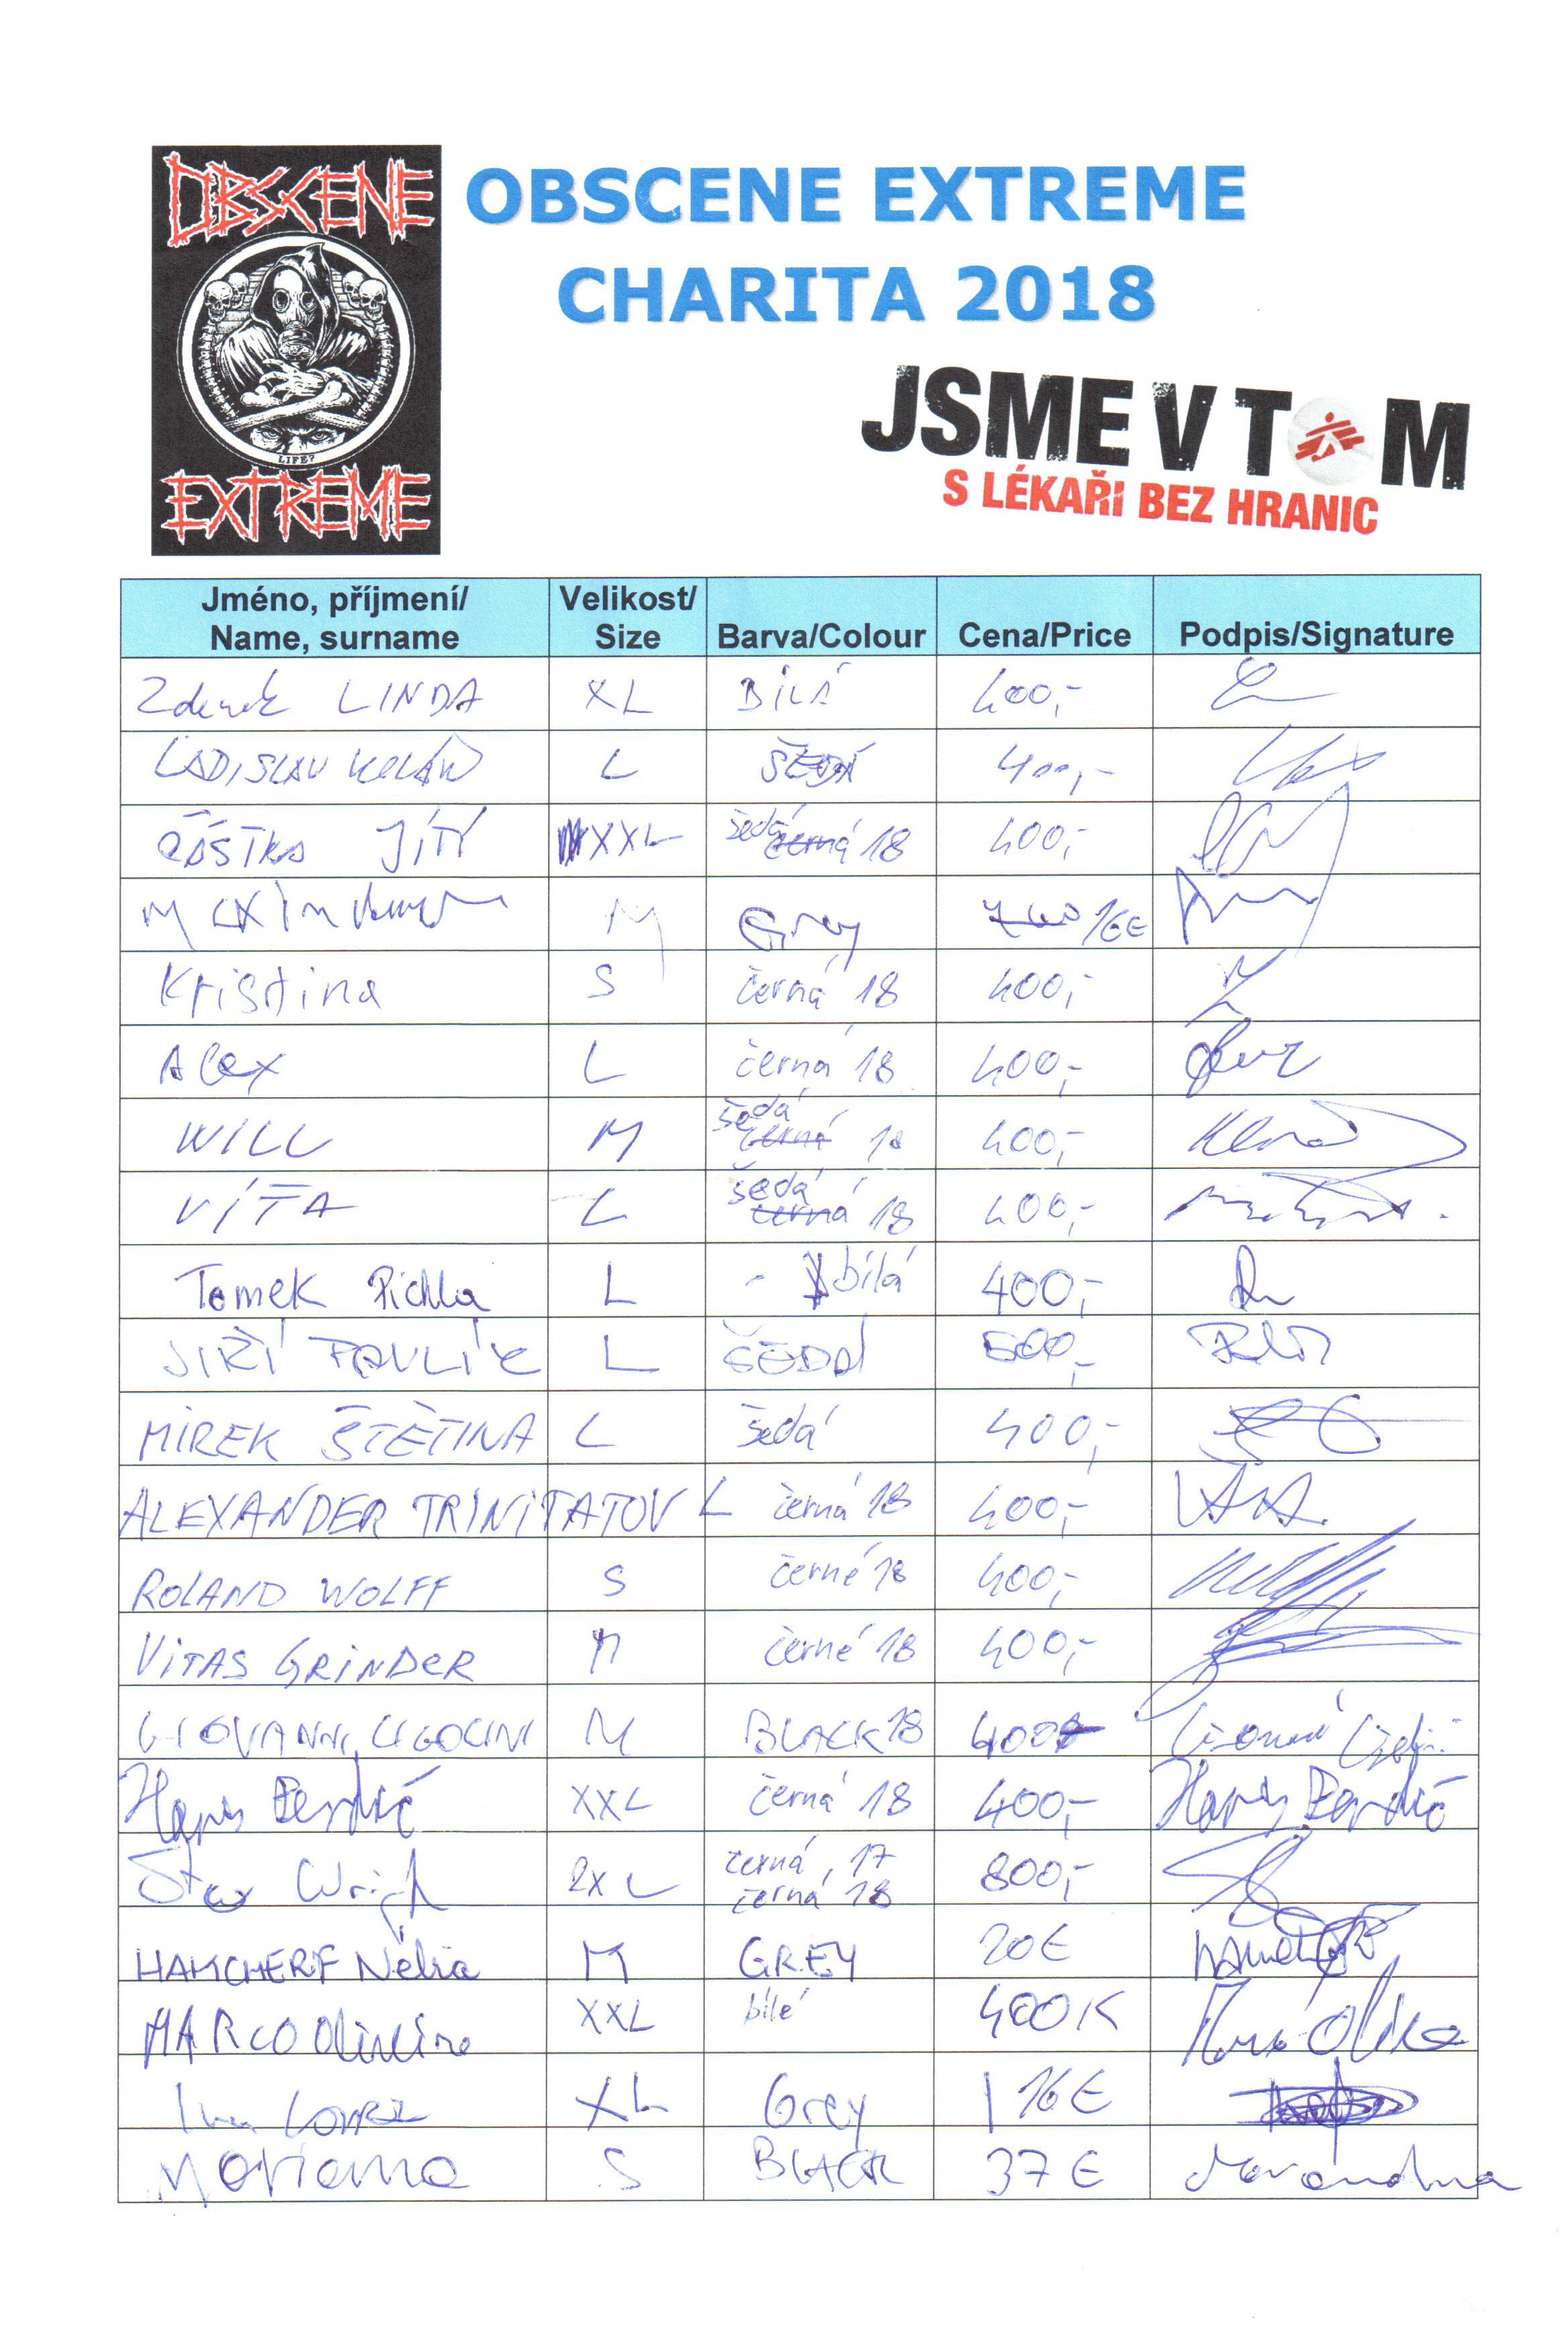 OBSCENE
EXTREME
LIFE?
OBSCENE EXTREME
CHARITA 2018
JSME V TOM
S LÉKAŘI BEZ HRANIC
Jméno, příjmení/ Name, surname Velikost/ Size Barva/Colour Cena/Price Podpis/Signature
Zdeněk LINDA XL BÍLÁ 400,-
LADISLAV KOLÁŘ L ŠEDÁ 400,-
ČÁSTKA JIŘÍ XXL šedá černá 18 400,-
M Grey 16€
Kristina S černá 18 400,-
Alex L černá 18 400,-
WILL M šedá černá 18 400,-
VÍŤA L šedá černá 18 400,-
Tomek Pichla L - bílá 400,-
JIŘÍ PAVLÍK L ŠEDÁ 500,-
MIREK ŠTĚTINA L šedá 400,-
ALEXANDER TRINITATOV L černá 18 400,-
ROLAND WOLFF S černé 18 400,-
VITAS GRINDER M černé 18 400,-
GIOVANNI UGOLINI M BLACK 18 400
XXL černá 18 400,-
2XL černá, 17 černá 18 800,-
HAMCHERIF Nélia M GREY 20€
MARCO XXL bílé 400K
Ivan XL Grey 16€
Mariana S BLACK 37€